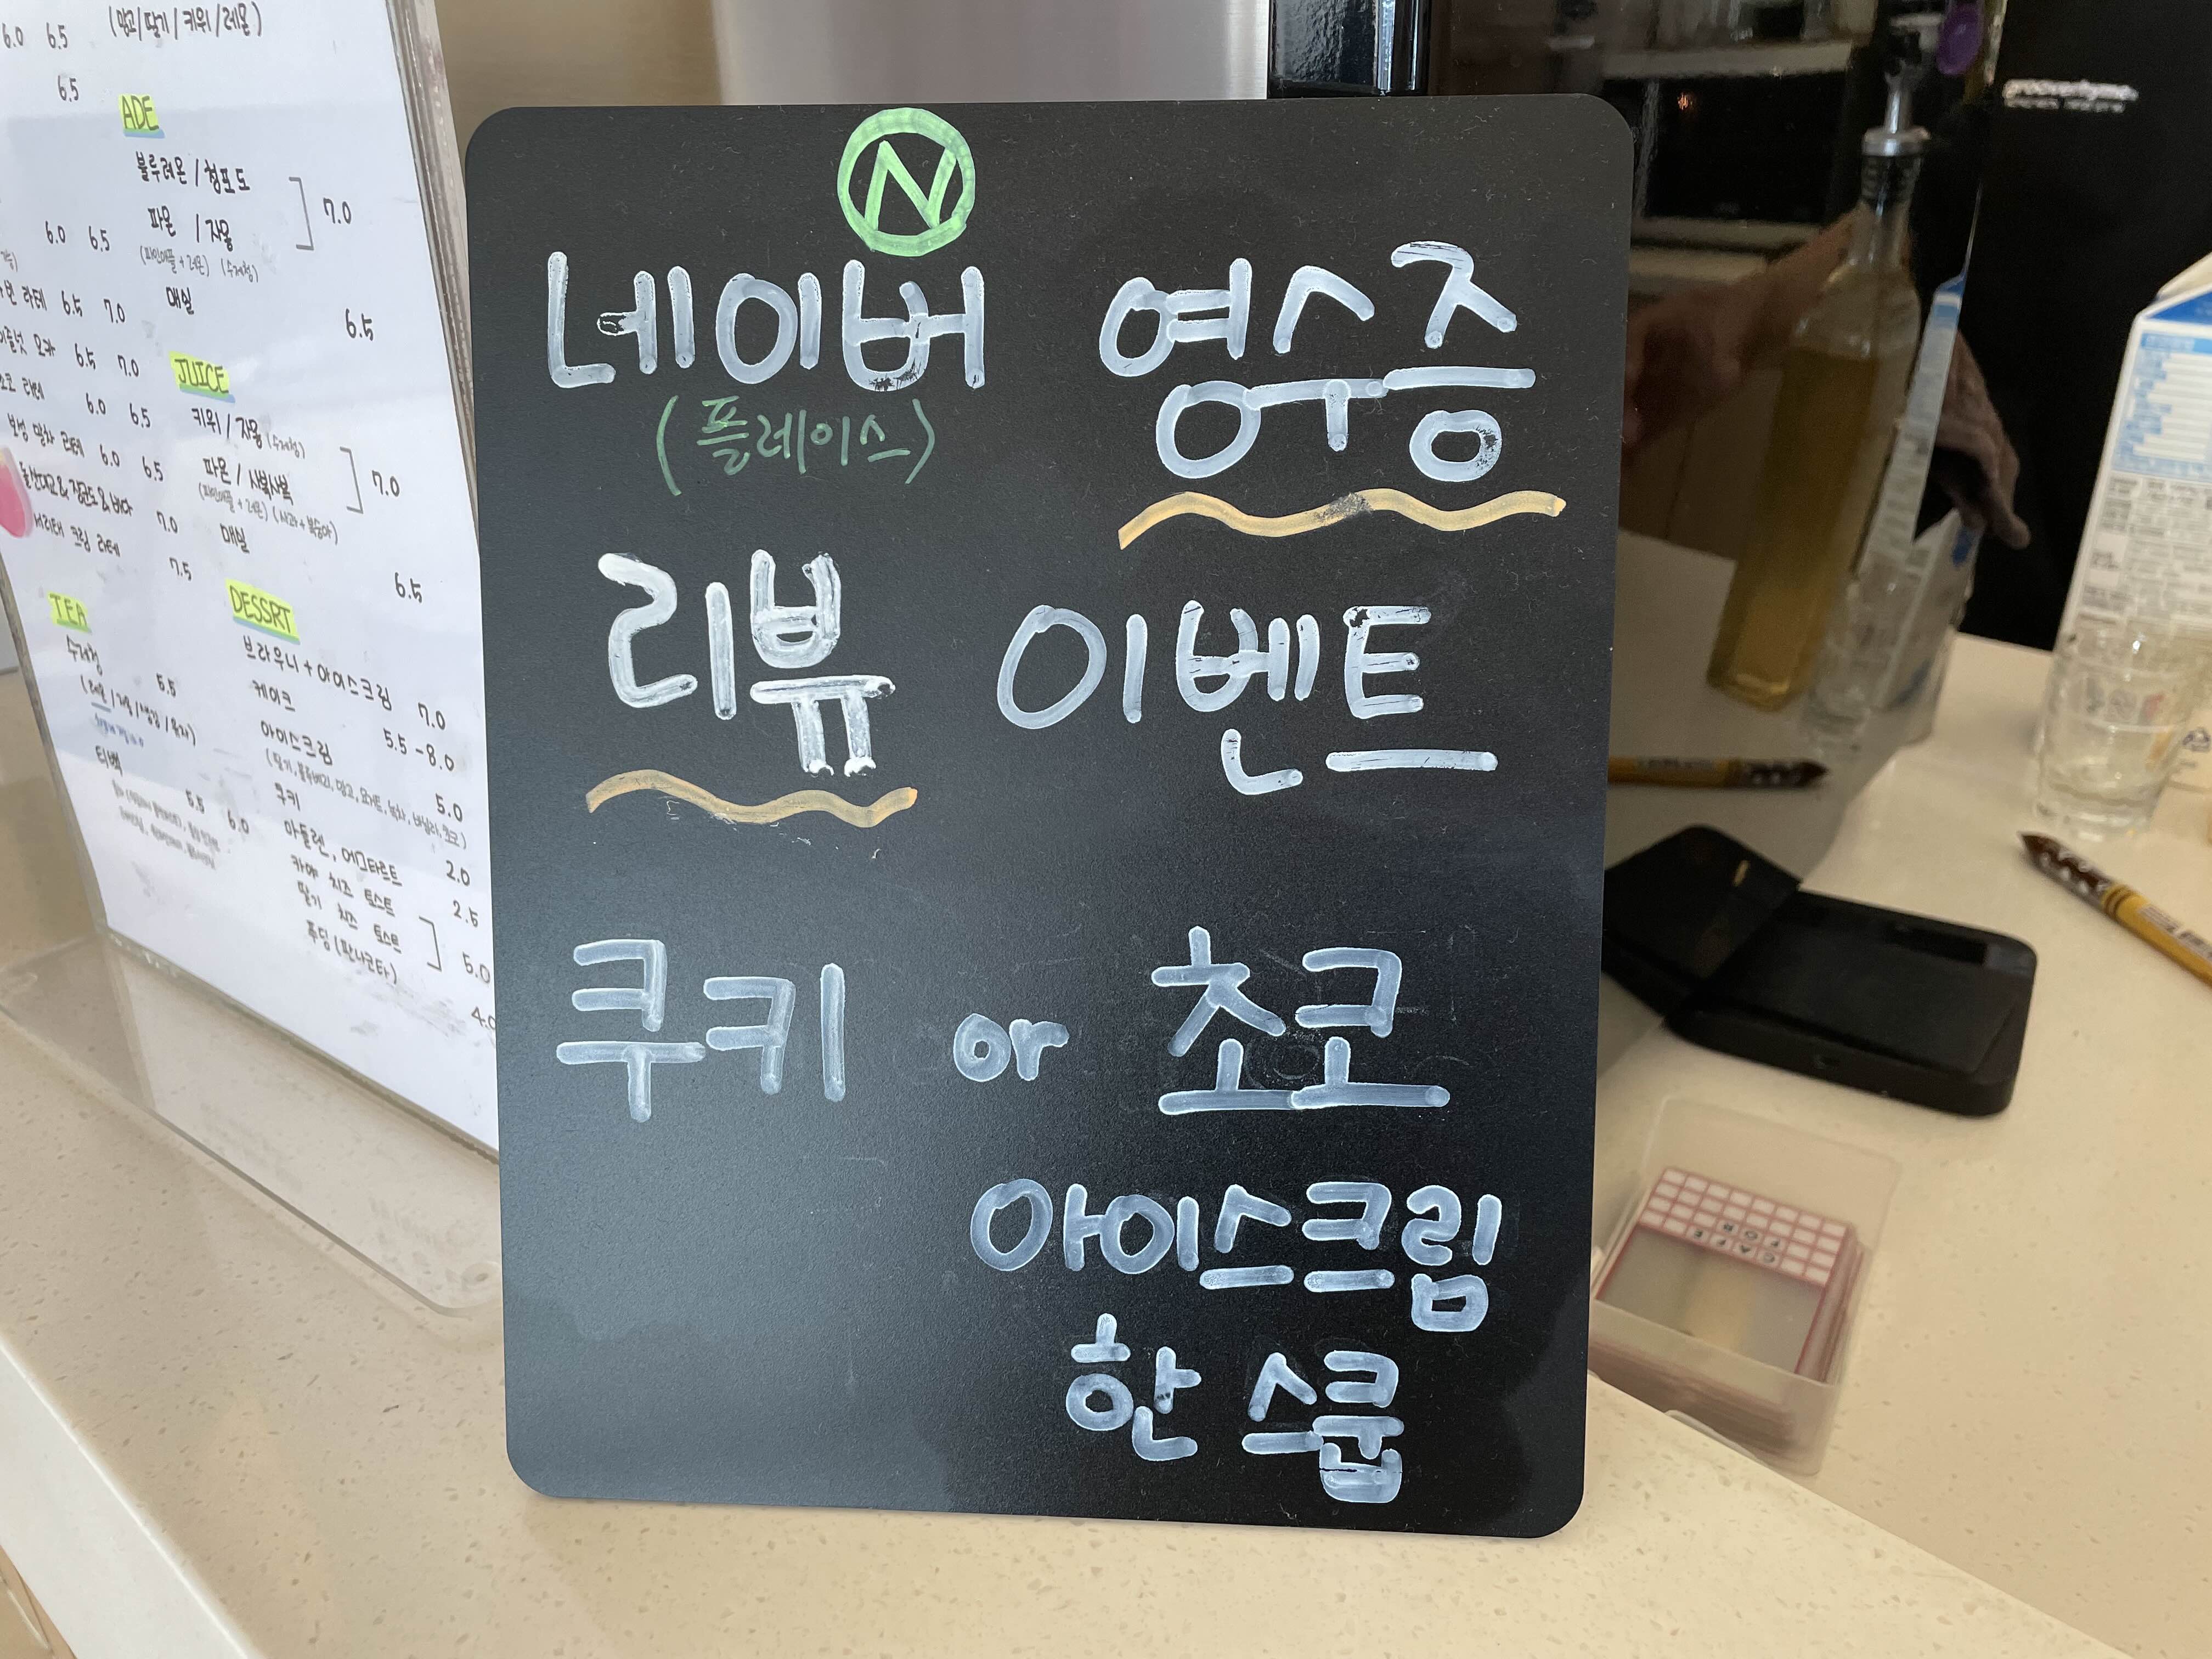 N
네이버 영수증
(플레이스)
리뷰 이벤트
쿠키 or 초코
아이스크림
한 스쿱
6.0 6.5 (망고/딸기/키위/레몬)
6.5
ADE
블루레몬/청포도
파몬/자몽 7.0
(파인애플+레몬) (수제청)
매실 6.5
6.0 6.5
라떼 6.5 7.0
6.5 7.0
라떼 6.0 6.5
말차 라떼 6.0 6.5
7.0
서리태 크림 라떼 7.5
JUICE
키위/자몽(수제청)
파몬/사복사복 7.0
(파인애플+레몬) (사과+복숭아)
매실 6.5
TEA
수제청 5.5
티백
5.5 6.0
DESSRT
브라우니+아이스크림 7.0
케이크 5.5-8.0
아이스크림 5.0
(딸기, 블루베리, 망고, 요거트, 녹차, 바닐라, 초코)
쿠키 2.0
마들렌, 에그타르트 2.5
카야 치즈 토스트
딸기 치즈 토스트 5.0
푸딩(판나코타) 4.0
CAFE
FOR